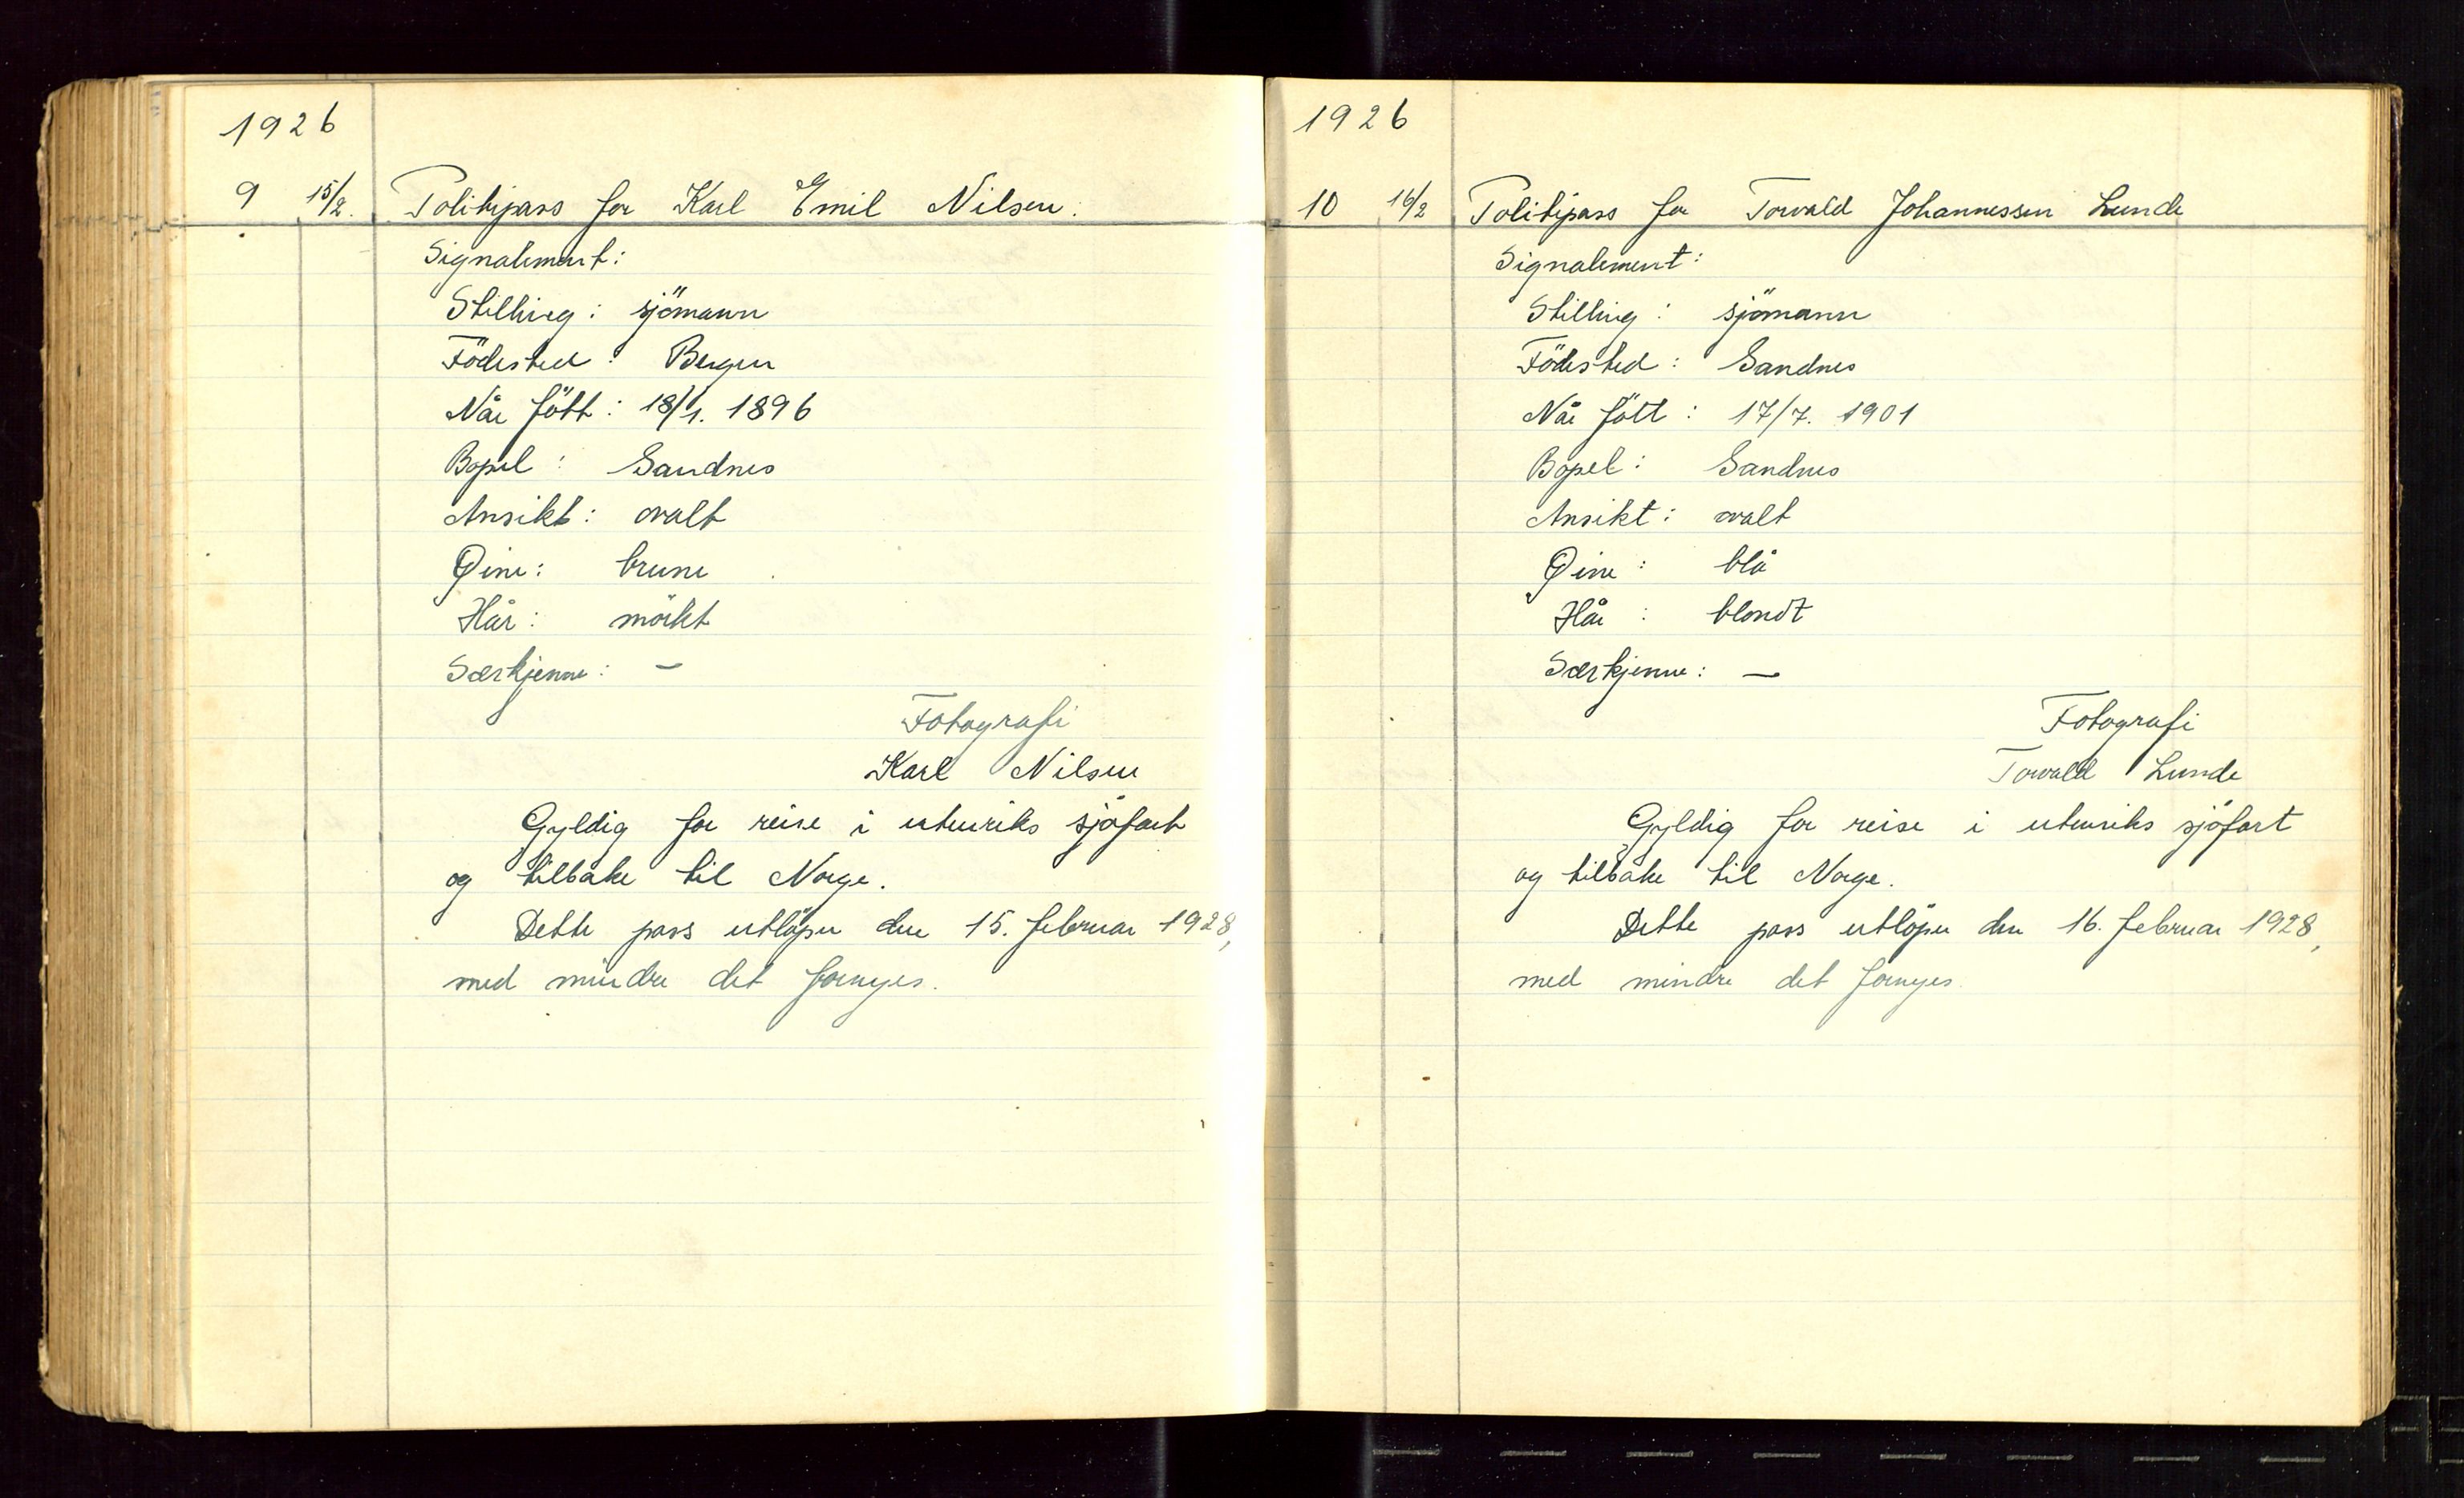 1926
9 15/2. Politipass for Karl Emil Nilsen.
Signalement:
Stilling: sjömann
Födested: Bergen
Når fött: 18/1. 1896
Bopel: Sandnes
Ansikt: ovalt
Øine: brune
Hår: mörkt
Særkjenne: —
Fotografi
Karl Nilsen
Gyldig for reise i utenriks sjöfart
og tilbake til Norge.
Dette pass utlöper den 15. februar 1928,
med mindre det fornyes.
1926
10 16/2 Politipass for Torvald Johannessen Lunde
Signalement:
Stilling: sjömann
Födested: Sandnes
Når fött: 17/7. 1901
Bopel: Sandnes
Ansikt: ovalt
Øine: blå
Hår: blondt
Særkjenne: —
Fotografi
Torvald Lunde
Gyldig for reise i utenriks sjöfart
og tilbake til Norge.
Dette pass utlöper den 16. februar 1928,
med mindre det fornyes.